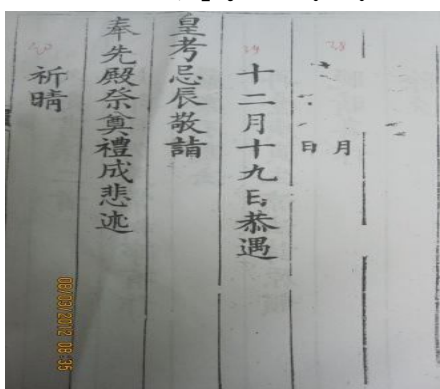 月
日
十二月十九日恭遇
皇考忌辰敬詣
奉先殿祭奠禮成悲述
祈晴
08/03/2012 08:35